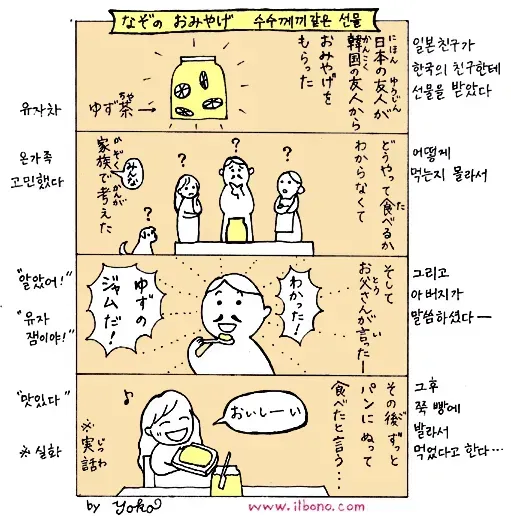 なぞの おみやげ 수수께끼같은 선물
日本の友人が
にほん ゆうじん
韓国の友人から
かんこく
おみやげを
もらった
ゆず茶→
ちゃ
일본친구가
한국의 친구한테
선물을 받았다
유자차
どうやって食べるか
た
わからなくて
みんな
家族で考えた
かぞく かんが
?
?
?
?
어떻게
먹는지 몰라서
온가족
고민했다
そして
お父さんが言ったー
とう い
わかった!
ゆずの
ジャムだ!
그리고
아버지가
말씀하셨다ー
"알았어!"
"유자
잼이야!"
その後ずっと
ご
パンにぬって
食べたと言う…
た い
おいしーい
♪
※実話
じつわ
그후
쭉 빵에
발라서
먹었다고 한다…
"맛있다"
※ 실화
by yoko
www.itbono.com